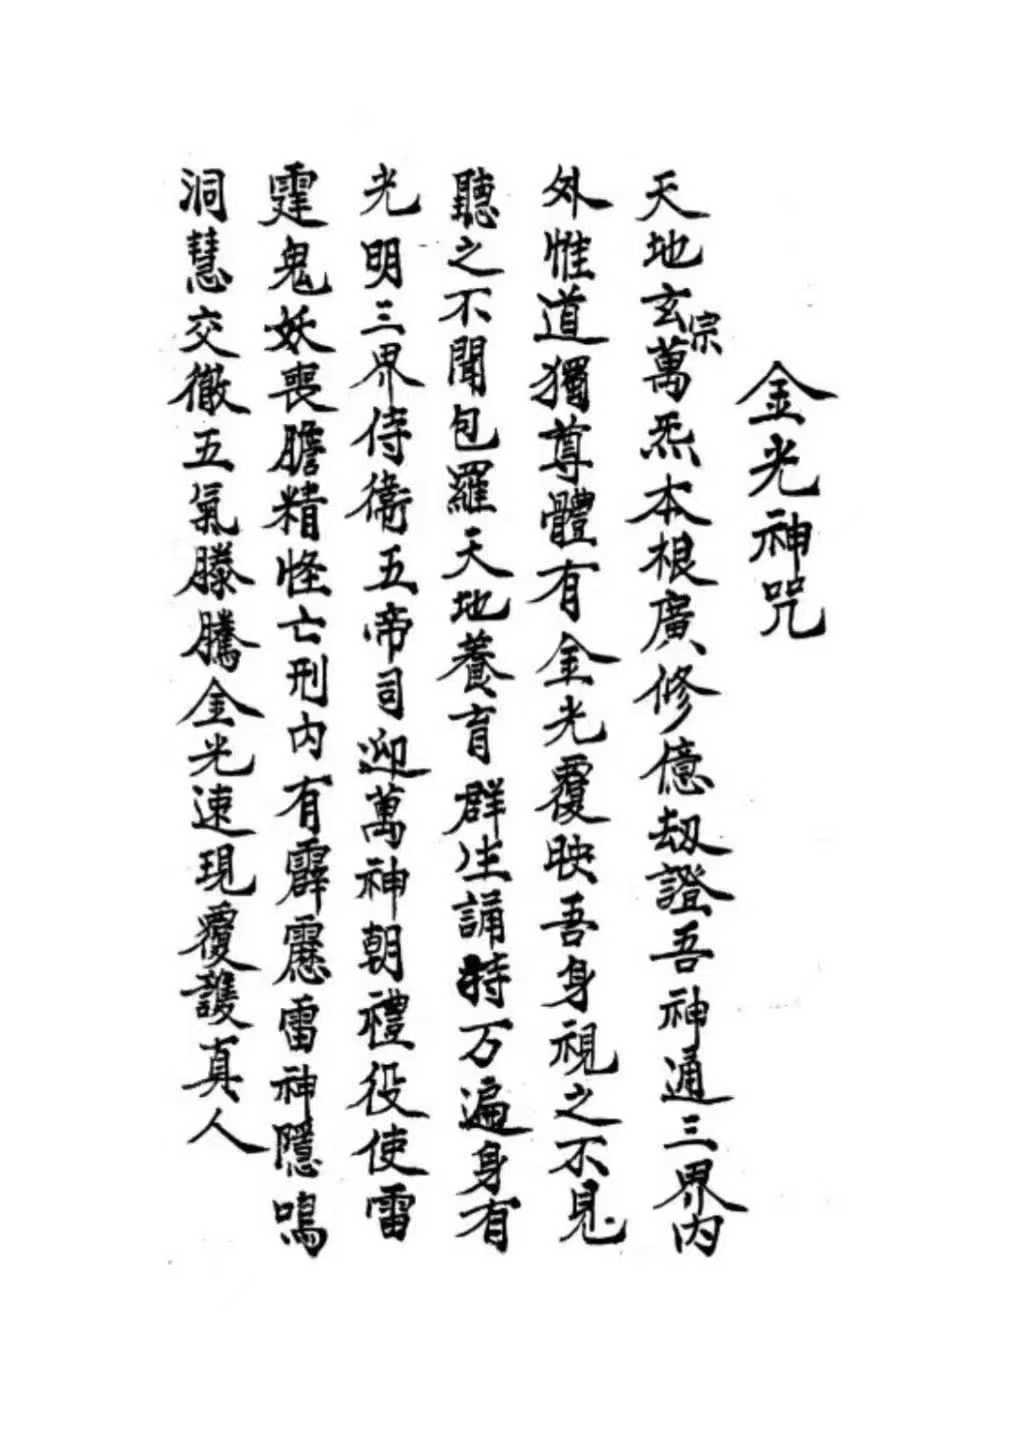 金光神咒
天地玄宗萬炁本根廣修億劫證吾神通三界內
外惟道獨尊體有金光覆映吾身視之不見
聽之不聞包羅天地養育群生誦持万遍身有
光明三界侍衛五帝司迎萬神朝禮役使雷
霆鬼妖喪膽精怪亡刑內有霹靂雷神隱鳴
洞慧交徹五氣騰騰金光速現覆護真人